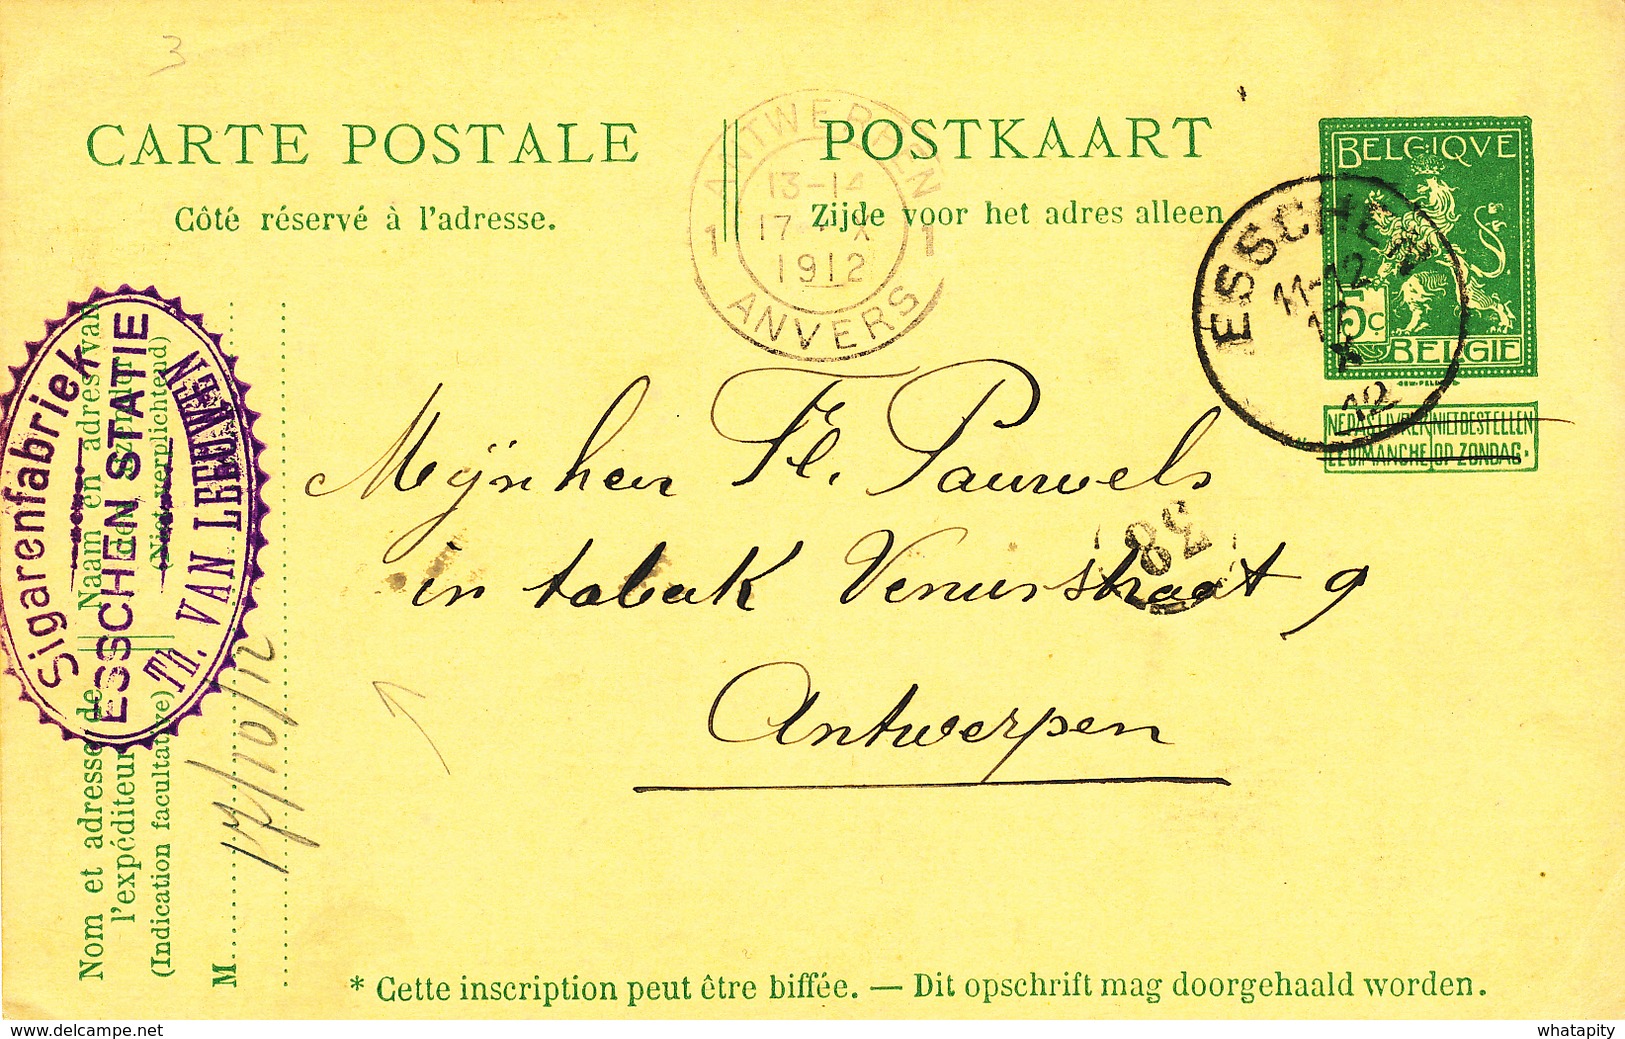 3
CARTE POSTALE
POSTKAART
Côté réservé à l'adresse.
Zijde voor het adres alleen
ANTWERPEN
13-14
1 17 X 1
1912
ANVERS
BELGIQVE
5c
BELGIE
ESSCHEN
11-12
17
X
12
NE PAS LIVRER NIET BESTELLEN
LE DIMANCHE OP ZONDAG.
Mijnheer Fl. Pauwels
in tabak Venusstraat 9
Antwerpen
38
Sigarenfabriek
ESSCHEN STATIE
Th. VAN LEEUWEN
Naam en adres van
den afzender
(Niet verplichtend)
Nom et adresse de
l'expéditeur
(Indication facultative)
M
17/10/12
* Cette inscription peut être biffée. — Dit opschrift mag doorgehaald worden.
whatapity
delcampe.net